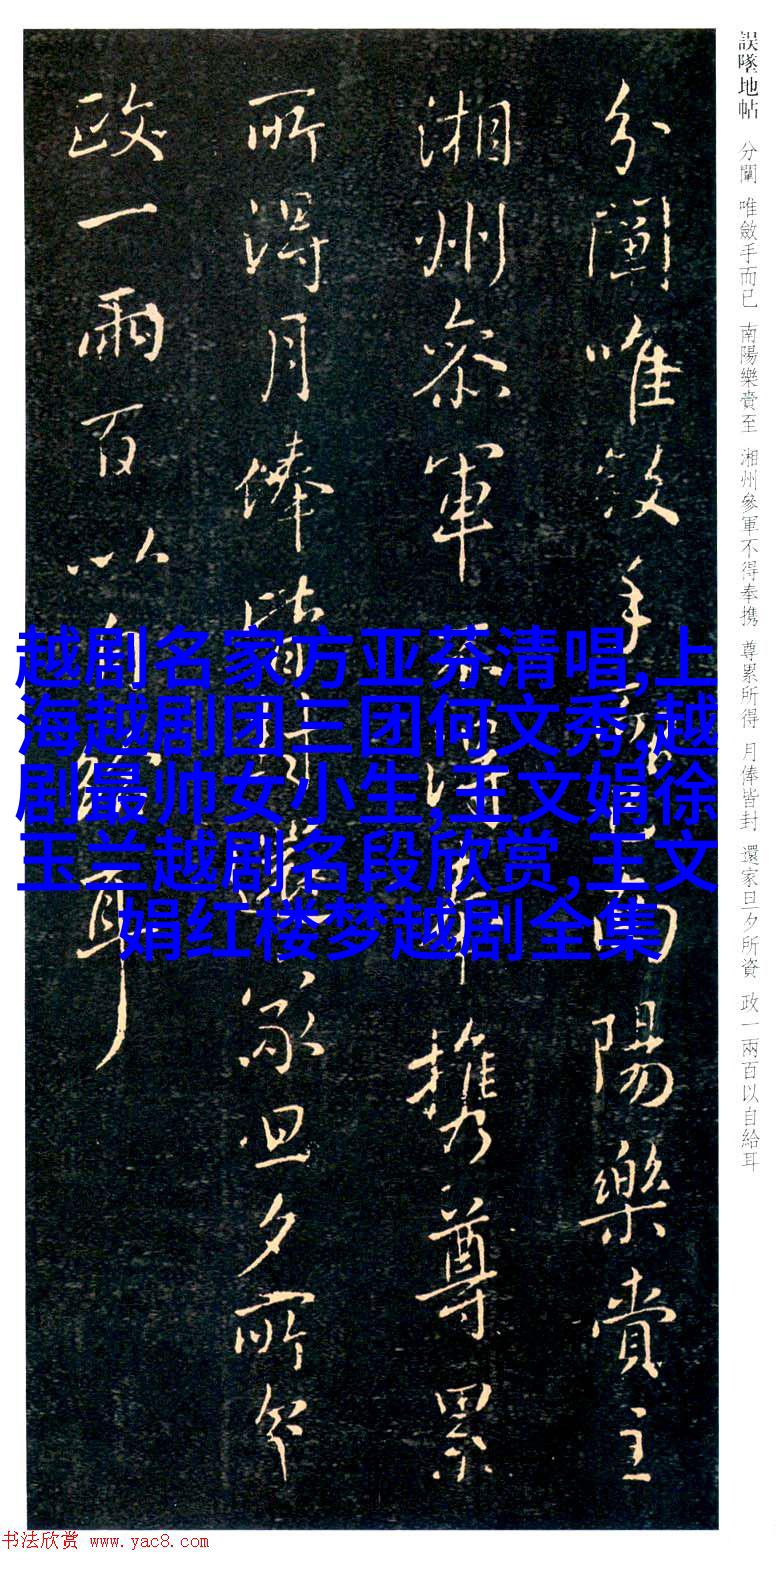 誤墜地帖 分闈 唯斂手而已 南陽樂賁至 湘州參軍不得奉携 尊累所得 月俸皆封 還家旦夕所資 政一兩百以自給耳
分闈唯斂手而已南陽樂賁至
湘州參軍不得奉携尊累
所得月俸皆封還家旦夕所資
政一兩百以自給耳
越剧名家方亚芬清唱,上
海越剧团三团何文秀,越
剧最帅女小生,王文娟徐
玉兰越剧名段欣赏,王文
娟红楼梦越剧全集
书法欣赏 www.yac8.com